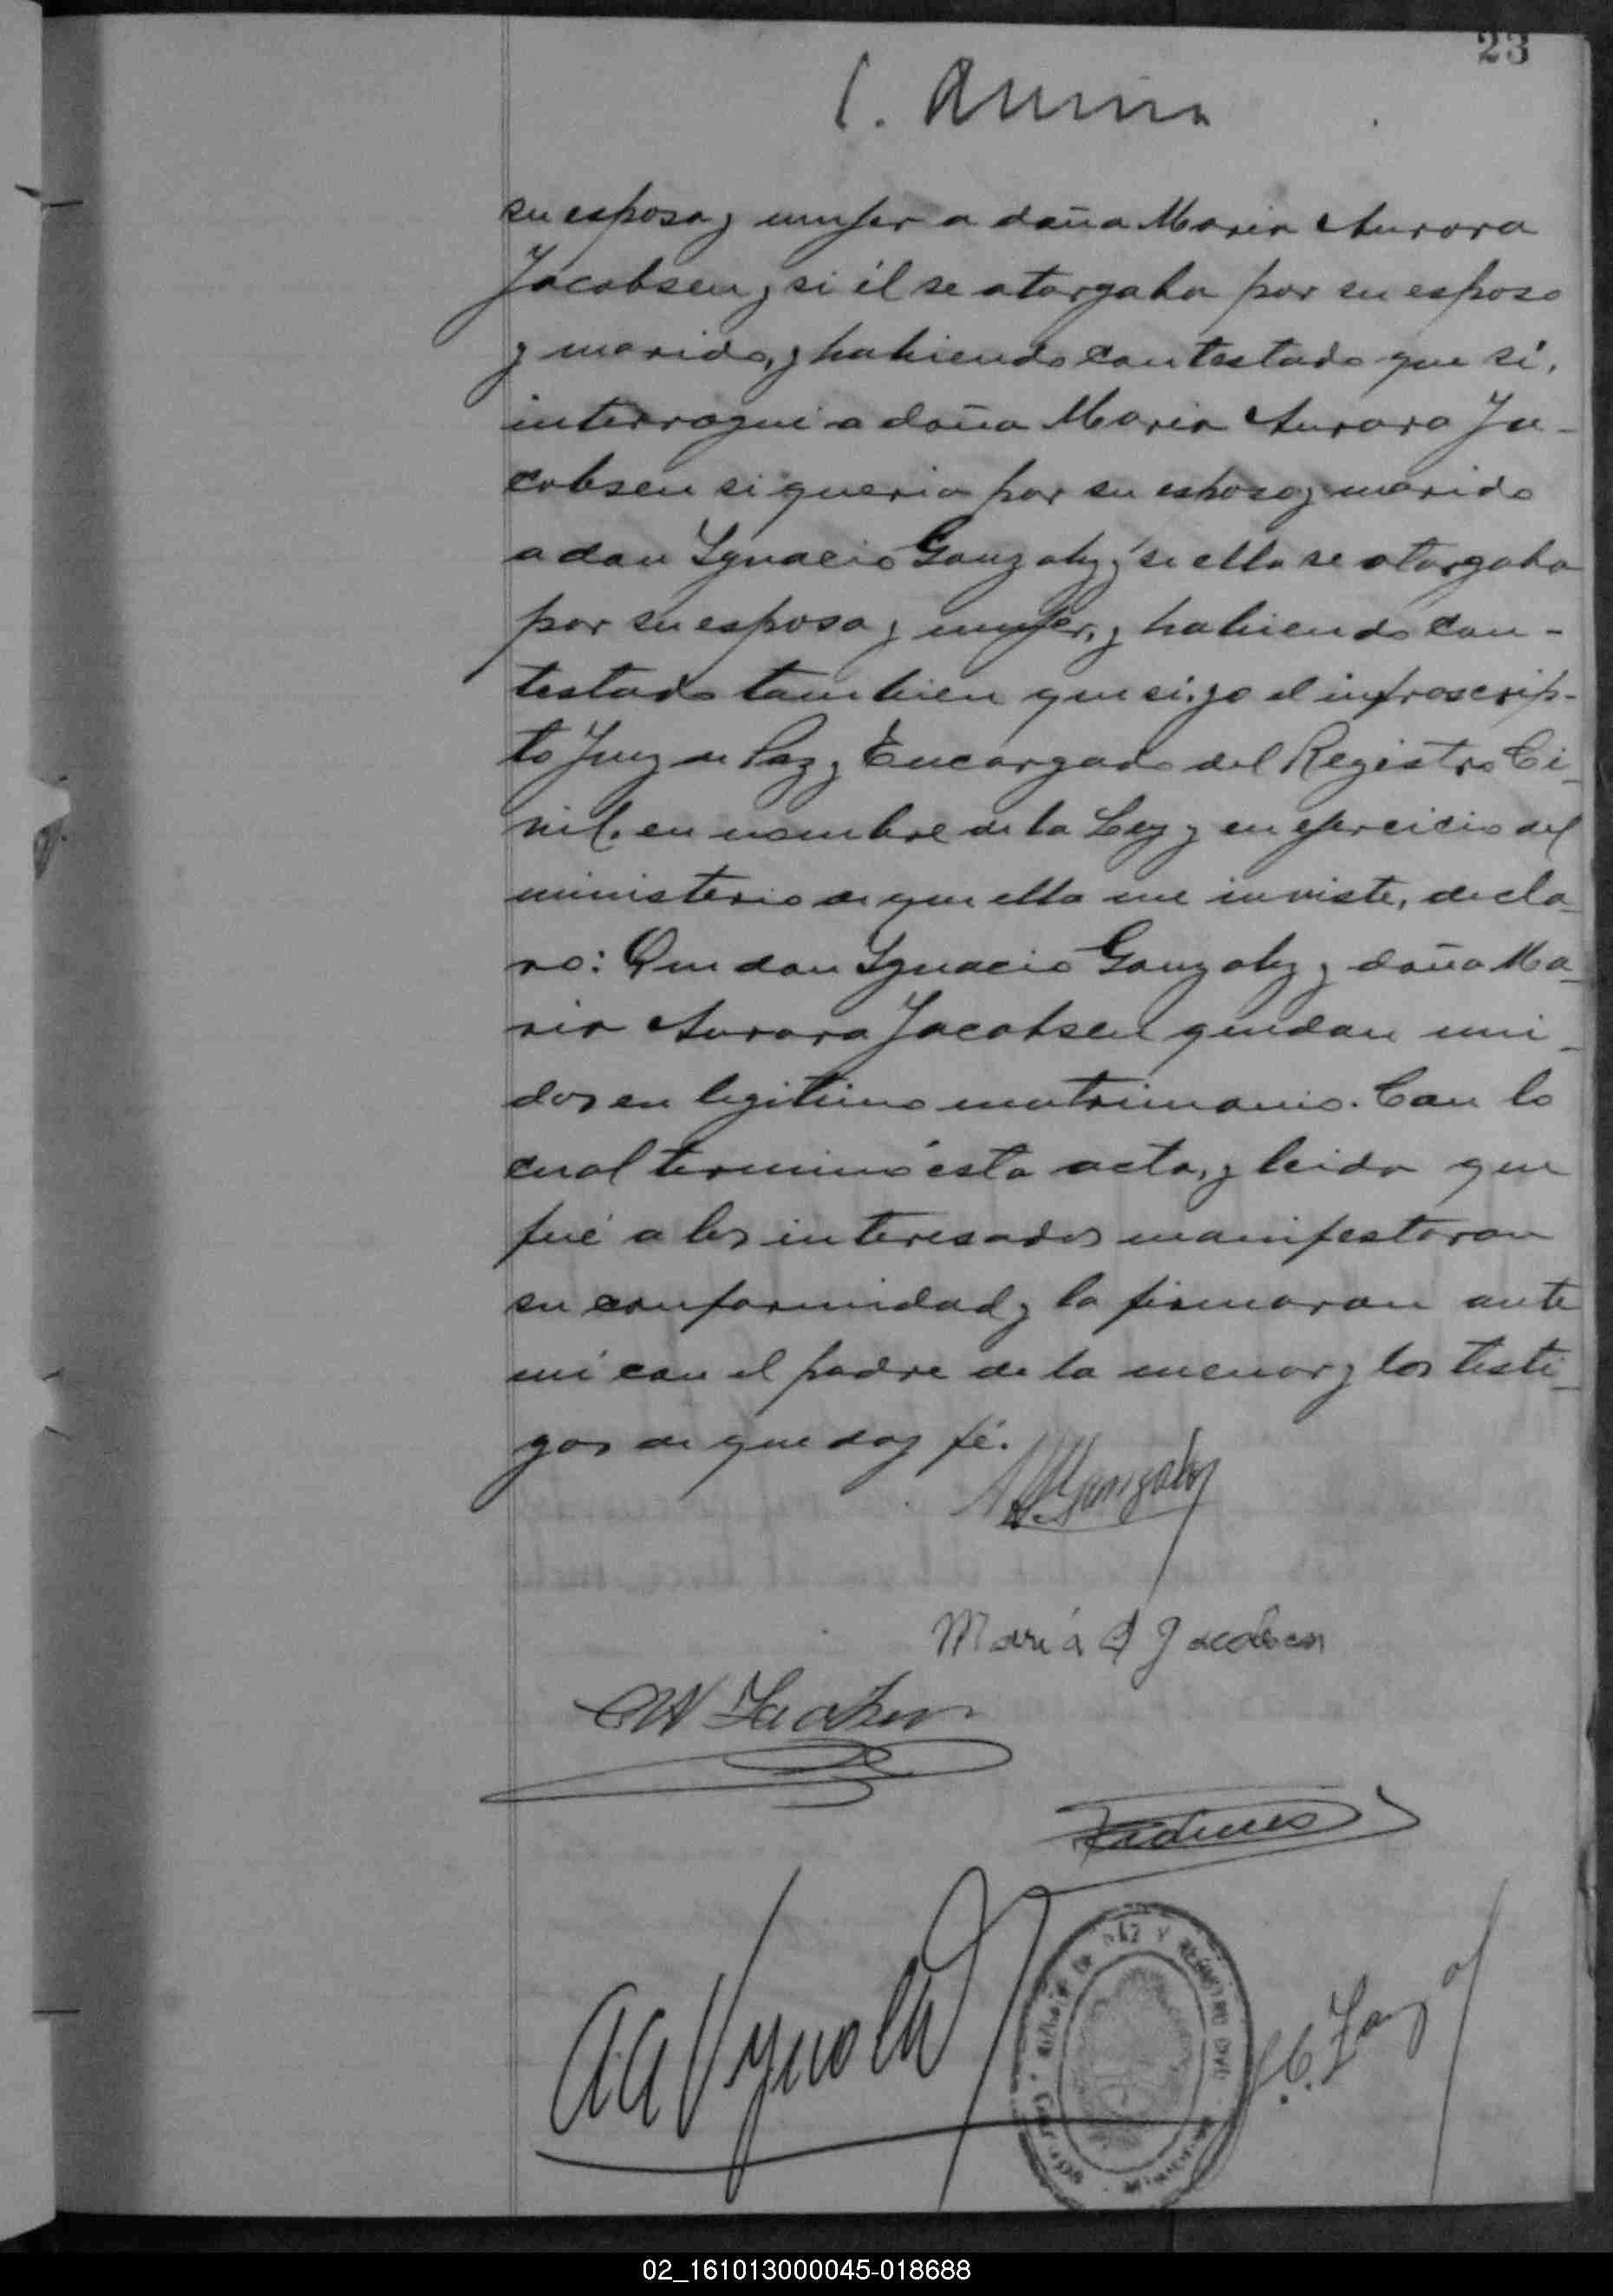 23
su esposa y mujer a doña Maria Aurora
Jacobsen y si él se otorgaba por su esposo
y marido, y habiendo contestado que sí,
interrogué a doña Maria Aurora Ja-
cobsen si queria por su esposo y marido
a don Ignacio Gonzalez y si ella se otorgaba
por su esposa y mujer, y habiendo con-
testado tambien que sí, yo el infrascrip-
to Juez de Paz y Encargado del Registro Ci-
vil, en nombre de la Ley y en ejercicio del
ministerio de que ella me inviste, decla-
ro: Que don Ignacio Gonzalez y doña Ma-
ria Aurora Jacobsen quedan uni-
dos en legitimo matrimonio. Con lo
cual terminó esta acta, y leida que
fué a los interesados manifestaron
su conformidad y la firmaron ante
mi con el padre de la menor y los testi-
gos de que doy fé.
Gonzalez
María A Jacobsen
PAZ Y REGISTRO CIVIL
02_161013000045-018688